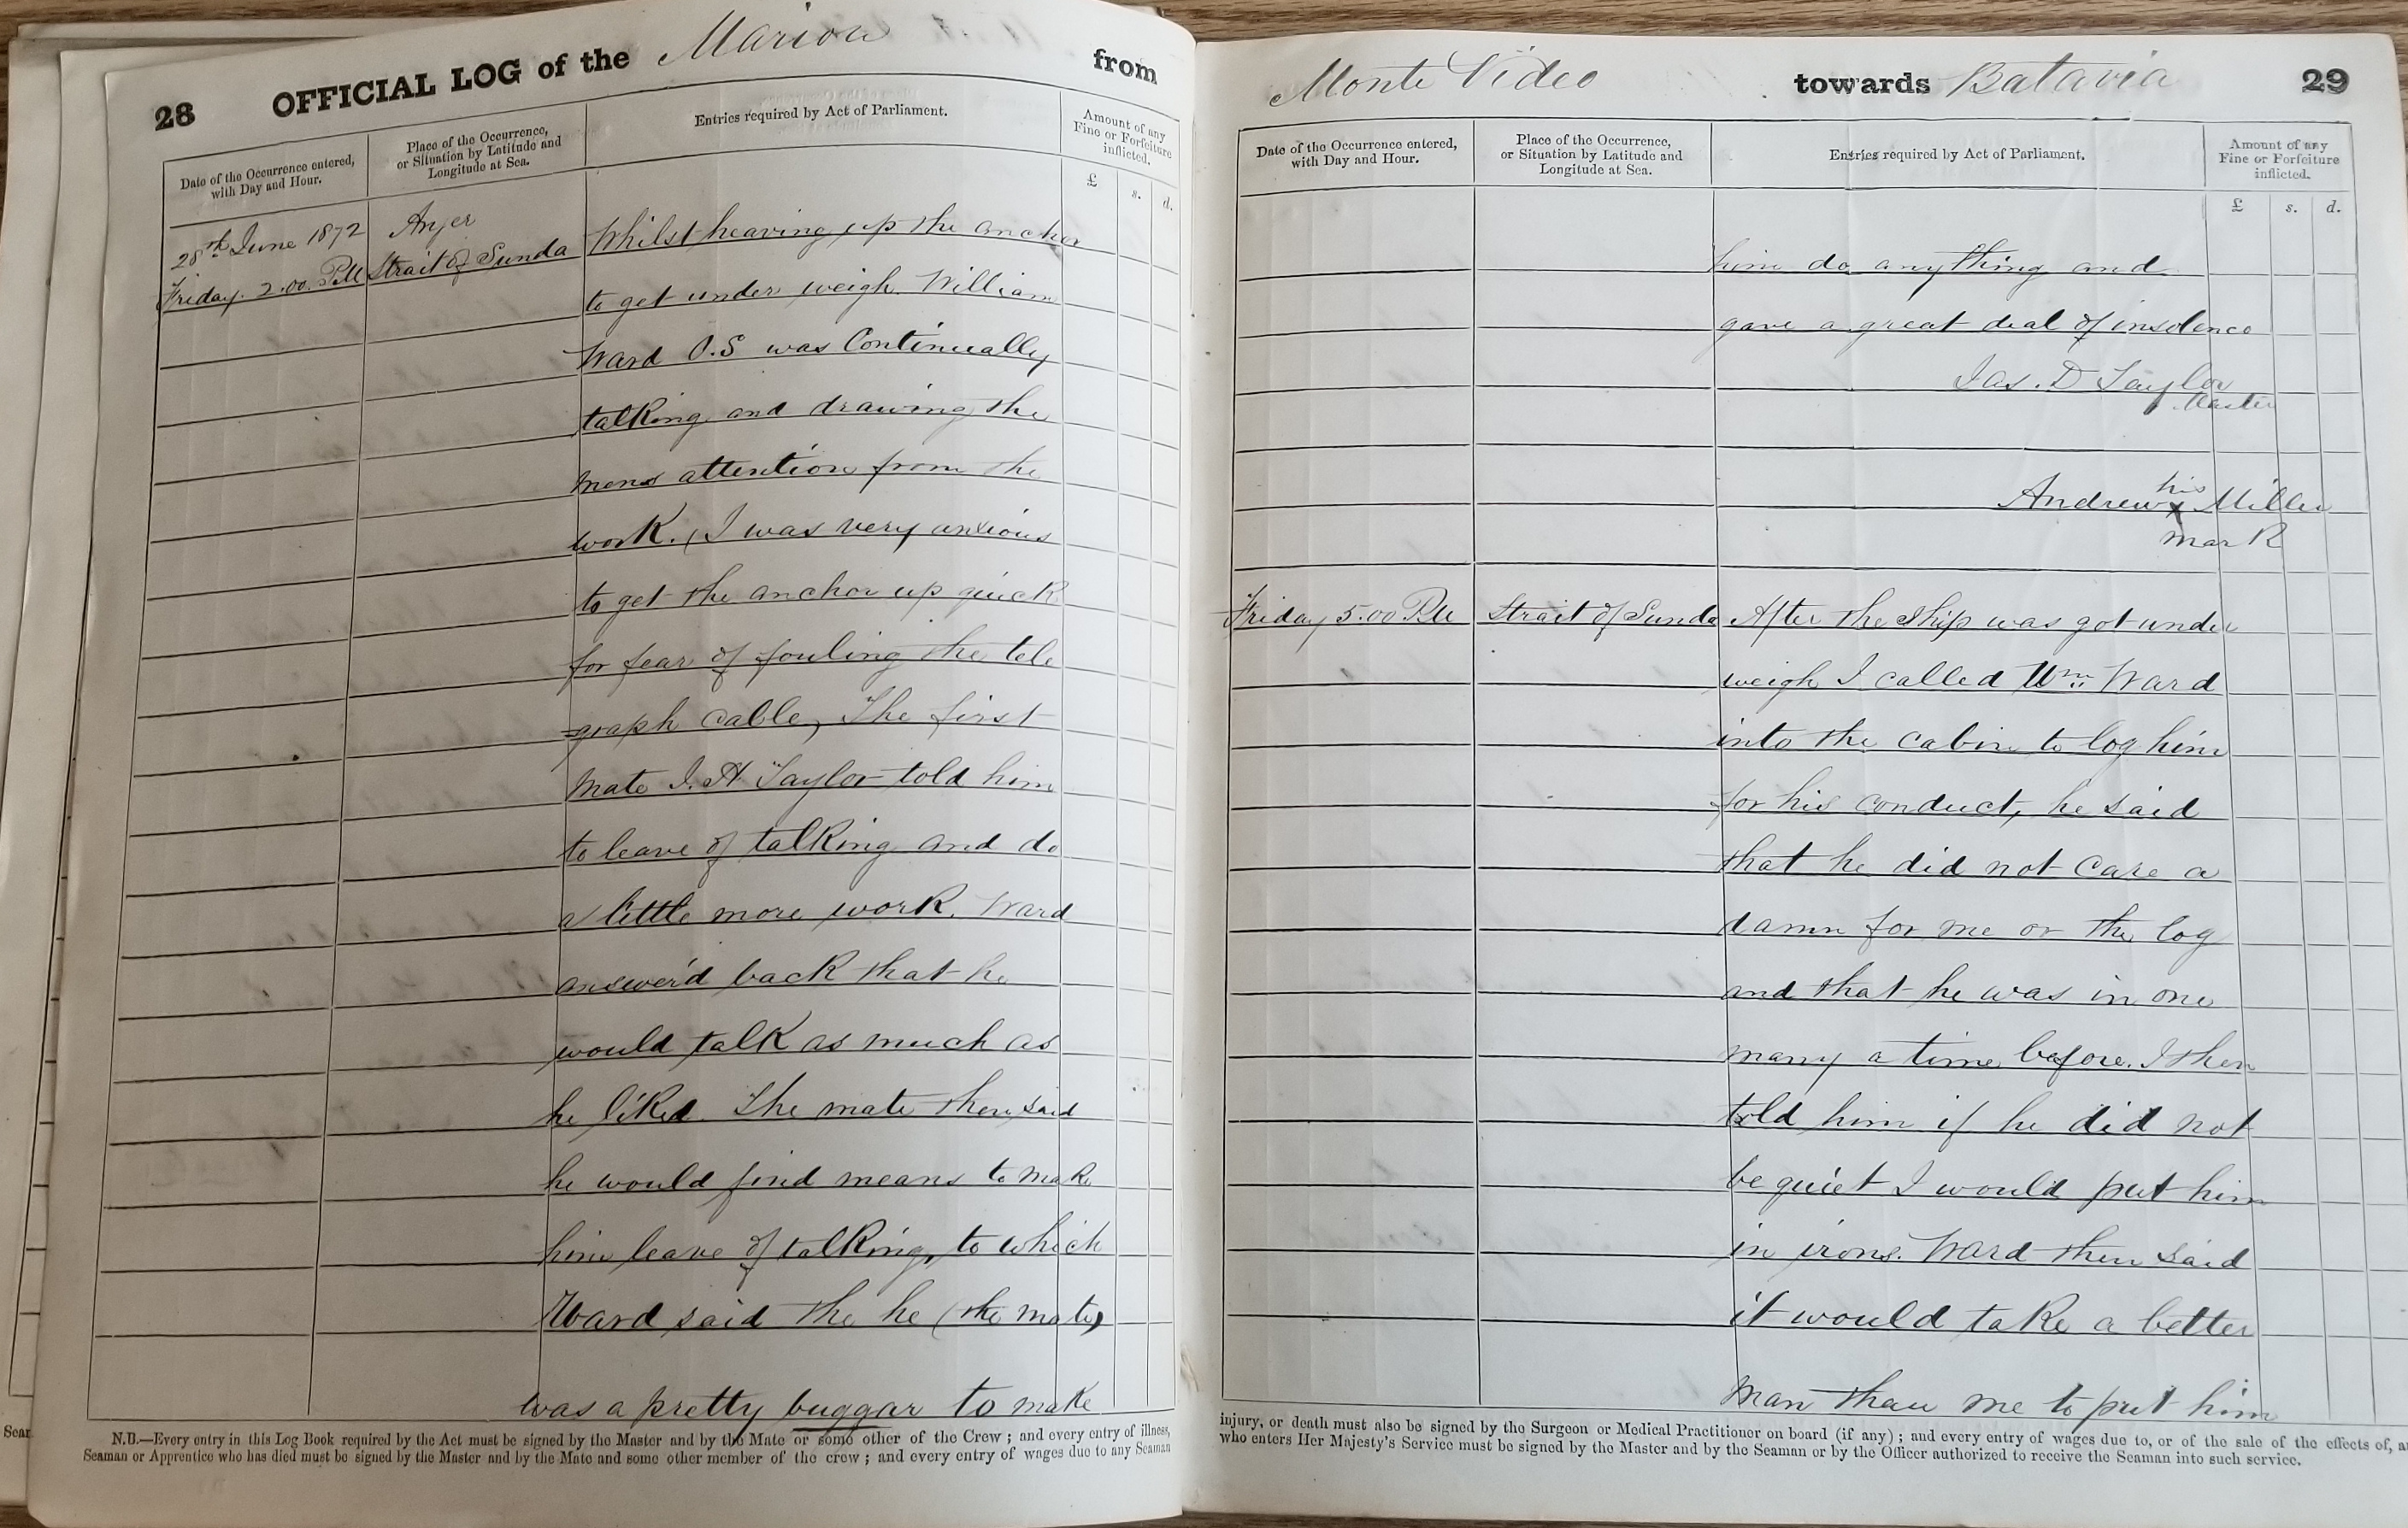 28 OFFICIAL LOG of the Marion from
Date of the Occurrence entered,
with Day and Hour.
Place of the Occurrence,
or Situation by Latitude and
Longitude at Sea.
Entries required by Act of Parliament.
Amount of any
Fine or Forfeiture
inflicted.
£ s. d.
28th June 1872 Anjer
Friday. 2.00. PM Strait of Sunda
Whilst heaving up the anchor
to get under weigh William
Ward O.S was Continually
talking and drawing the
mens attention from the
work. (I was very anxious
to get the anchor up quick
for fear of fouling the tele
=graph cable, The first
mate J. H Taylor told him
to leave of talking and do
a little more work. Ward
answerd back that he
would talk as much as
he liked. The mate then said
he would find means to make
him leave of talking, to which
Ward said the he (the mate)
was a pretty buggar to make
N.B.—Every entry in this Log Book required by the Act must be signed by the Master and by the Mate or some other of the Crew; and every entry of illness,
Seaman or Apprentice who has died must be signed by the Master and by the Mate and some other member of the crew; and every entry of wages due to any Seaman
Monte Video towards Batavia 29
Date of the Occurrence entered,
with Day and Hour.
Place of the Occurrence,
or Situation by Latitude and
Longitude at Sea.
Entries required by Act of Parliament.
Amount of any
Fine or Forfeiture
inflicted.
£ s. d.
him do anything and
gave a great deal of insolence
Jas. D Taylor
Master
his
Andrew x Miller
mark
Friday 5.00 PM Strait of Sunda After the Ship was got under
weigh I called Wm Ward
into the cabin to log him
for his conduct, he said
that he did not care a
damn for me or the log
and that he was in one
many a time before. I then
told him if he did not
be quiet I would put him
in irons. Ward then said
it would take a better
man than me to put him
injury, or death must also be signed by the Surgeon or Medical Practitioner on board (if any); and every entry of wages due to, or of the sale of the effects of,
who enters Her Majesty's Service must be signed by the Master and by the Seaman or by the Officer authorized to receive the Seaman into such service.